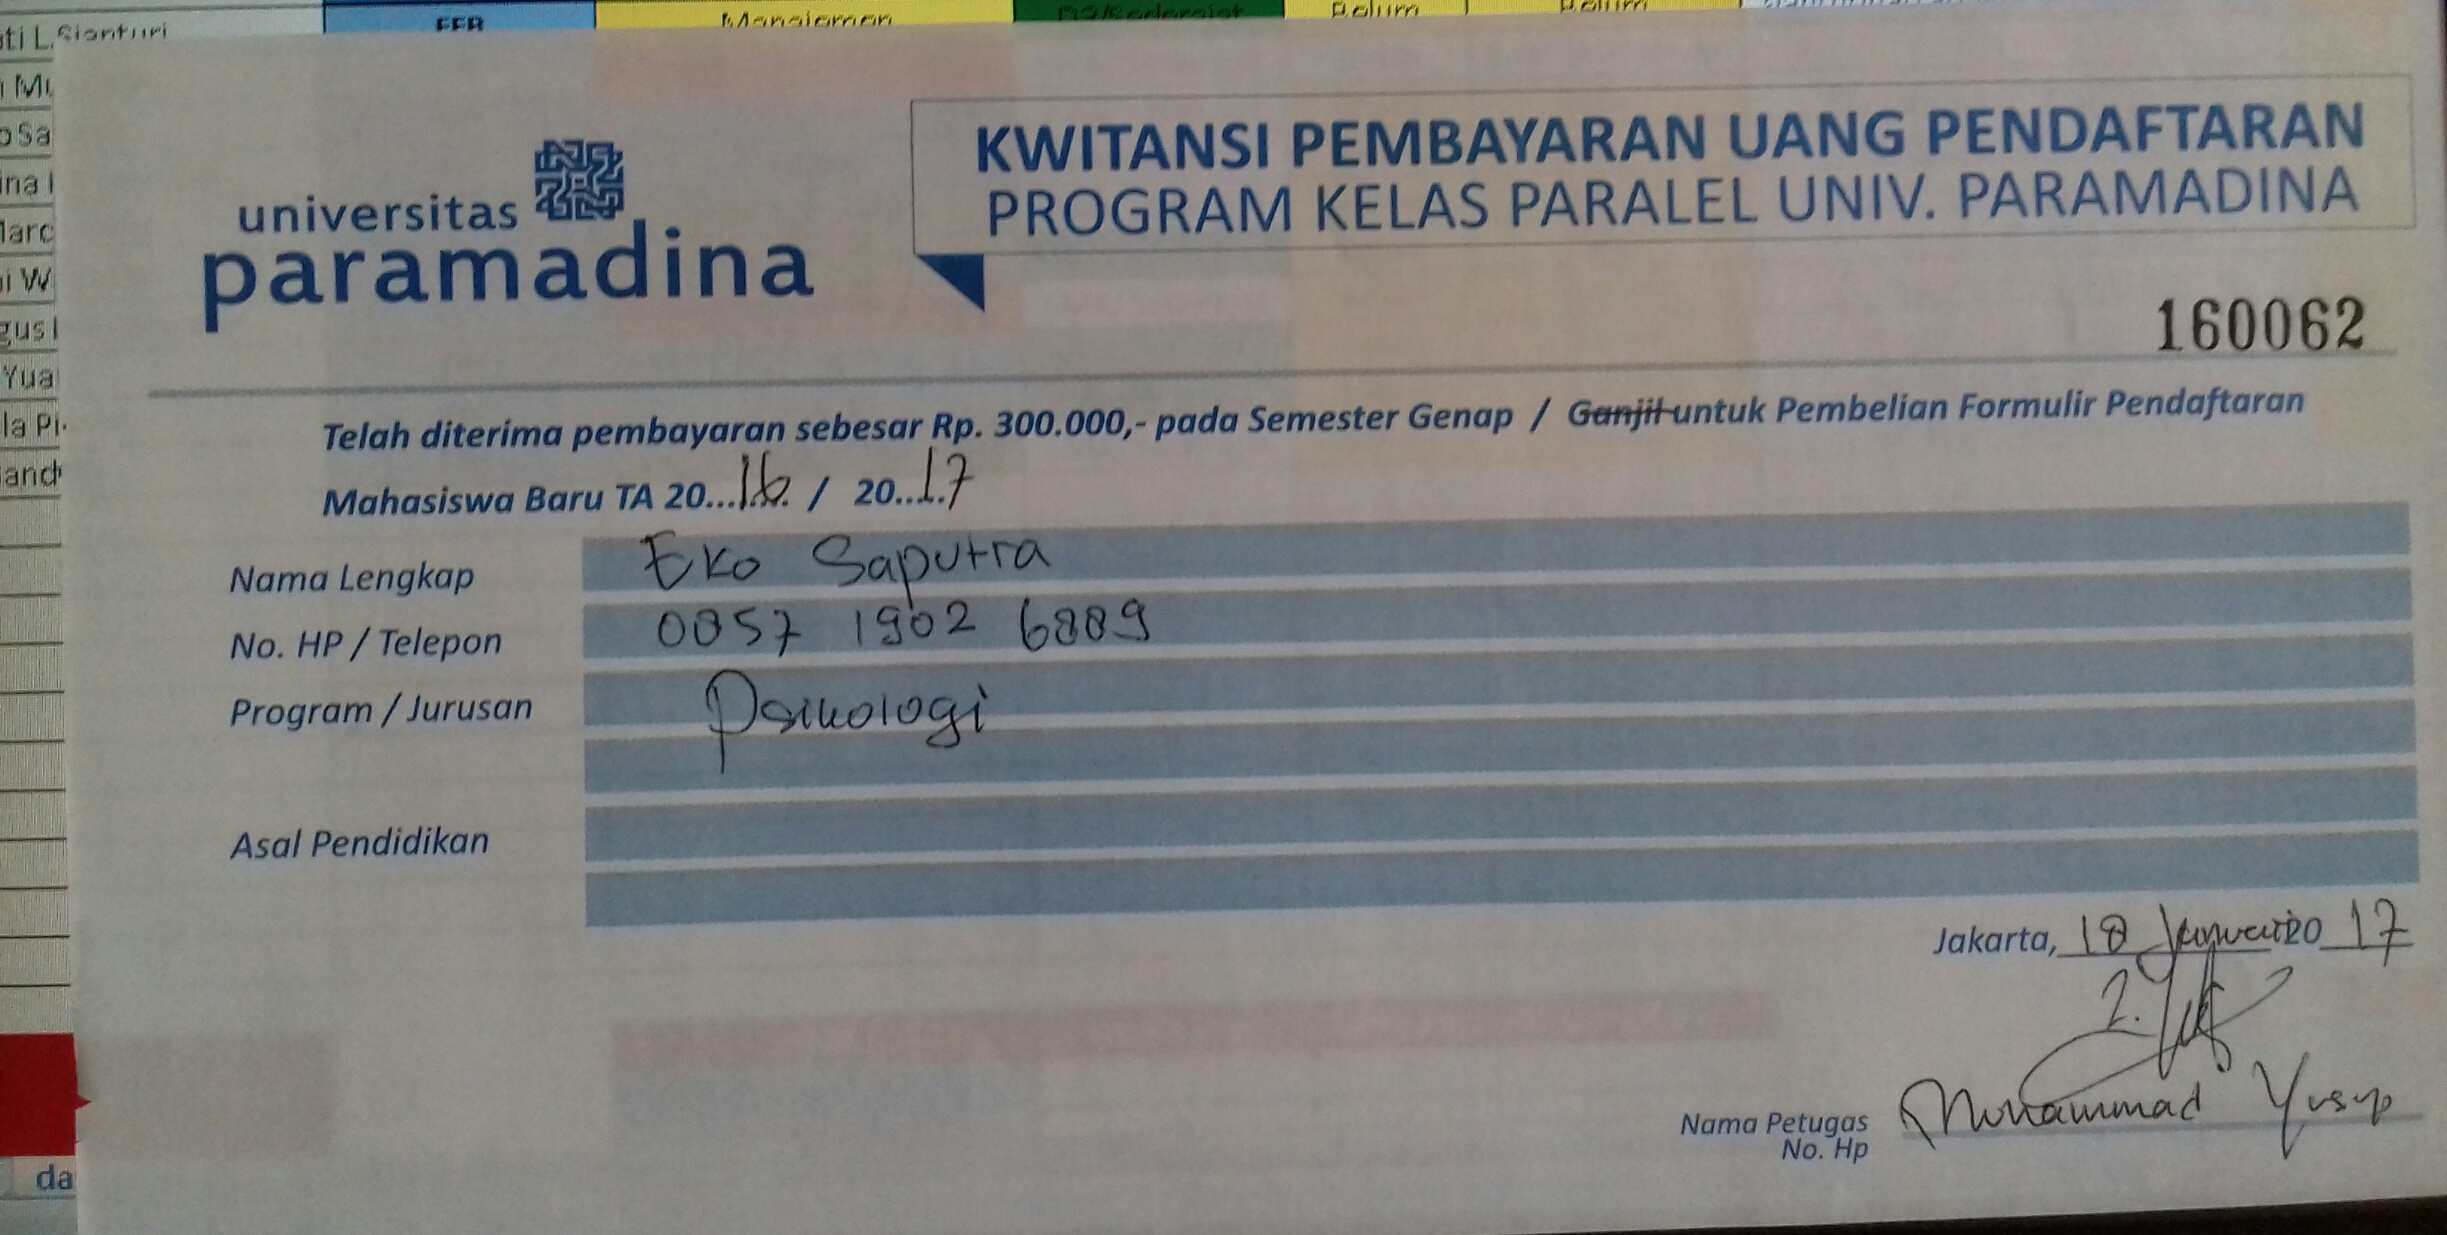 ati L.Sianturi
FEB
Manajemen
D3/Sederajat
Belum
Belum
universitas
paramadina
KWITANSI PEMBAYARAN UANG PENDAFTARAN
PROGRAM KELAS PARALEL UNIV. PARAMADINA
160062
Telah diterima pembayaran sebesar Rp. 300.000,- pada Semester Genap / Ganjil untuk Pembelian Formulir Pendaftaran
Mahasiswa Baru TA 20...16. / 20...17
Nama Lengkap Eko Saputra
No. HP / Telepon 0857 1902 6889
Program / Jurusan Psikologi
Asal Pendidikan
Jakarta, 18 Januari 20 17
Nama Petugas Muhammad Yusup
No. Hp
da